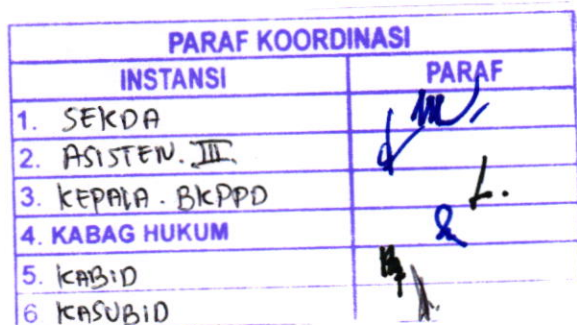 PARAF KOORDINASI
INSTANSI PARAF
1. SEKDA
2. ASISTEN. III.
3. KEPALA. BKPPD
4. KABAG HUKUM
5. KABID
6 KASUBID